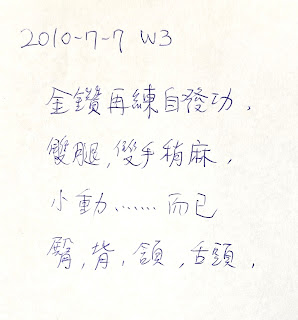 2010-7-7 W3
金鑽再練自發功,
雙腿,雙手稍麻,
小動……而已
臀,背,頷,舌頭,